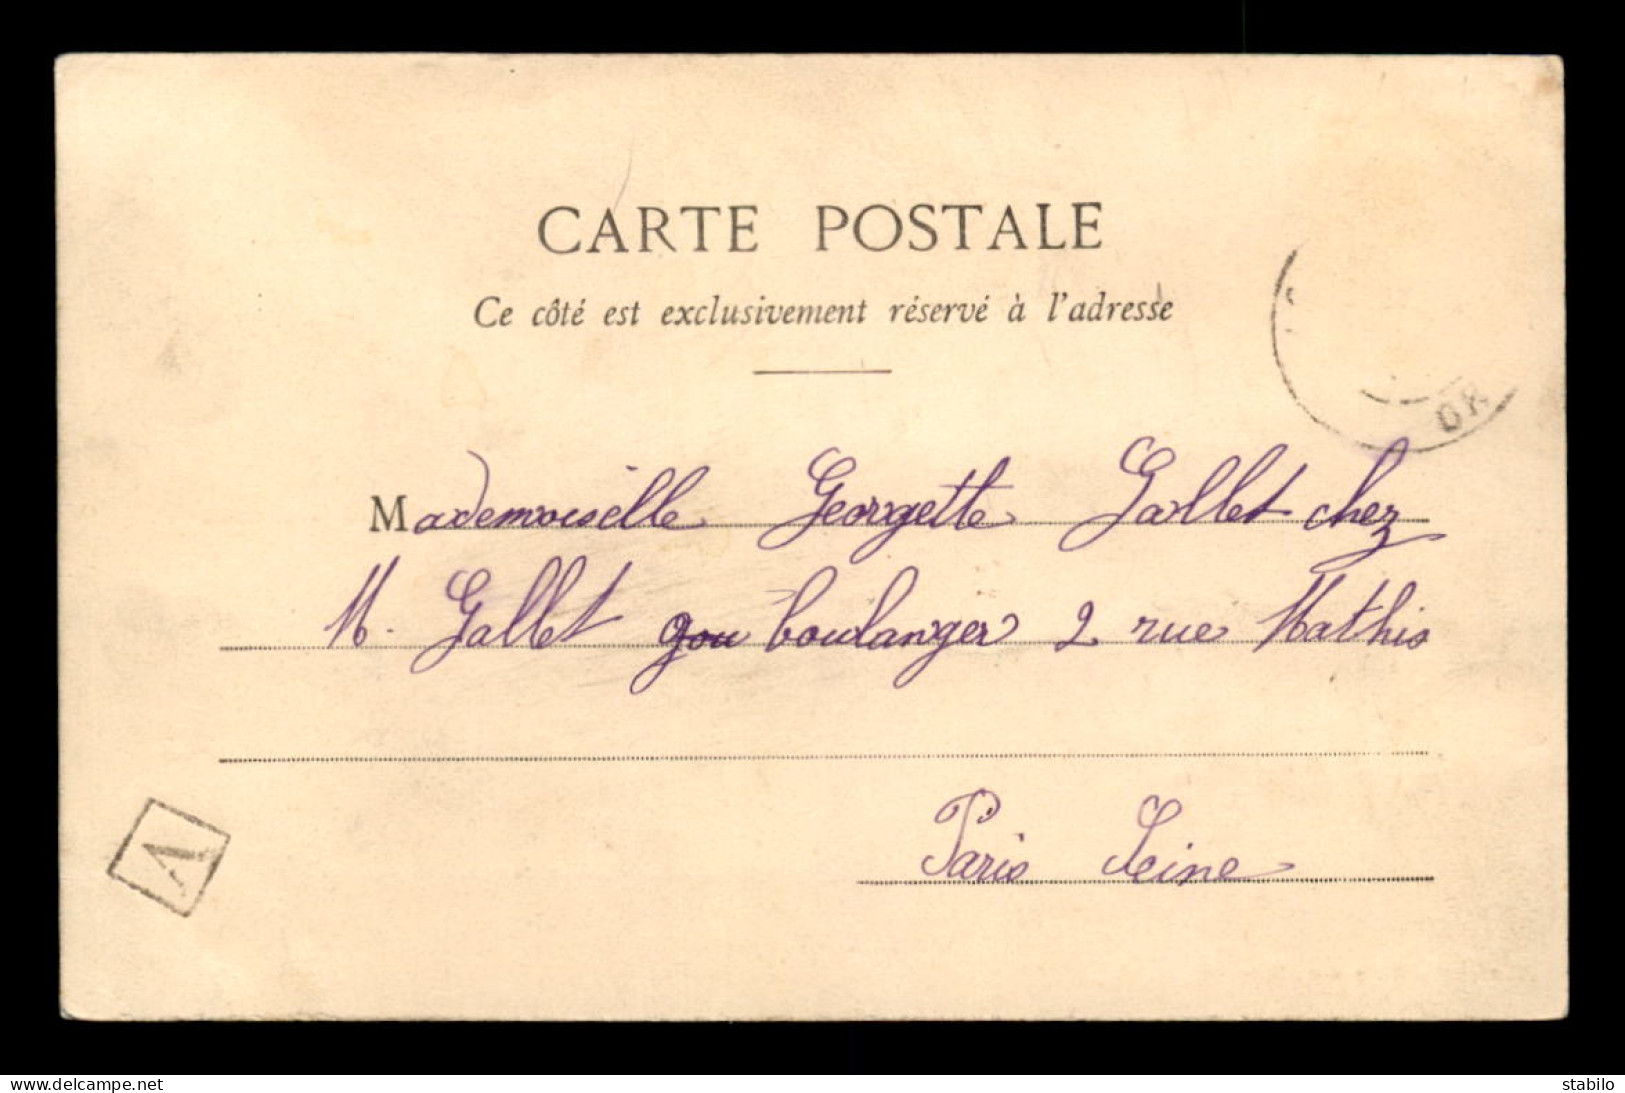 CARTE POSTALE
Ce côté est exclusivement réservé à l'adresse
OR
Mademoiselle Georgette Gallet chez
M. Gallet boulanger 2 rue Mathis
Paris Seine
A
www.delcampe.net
stabilo